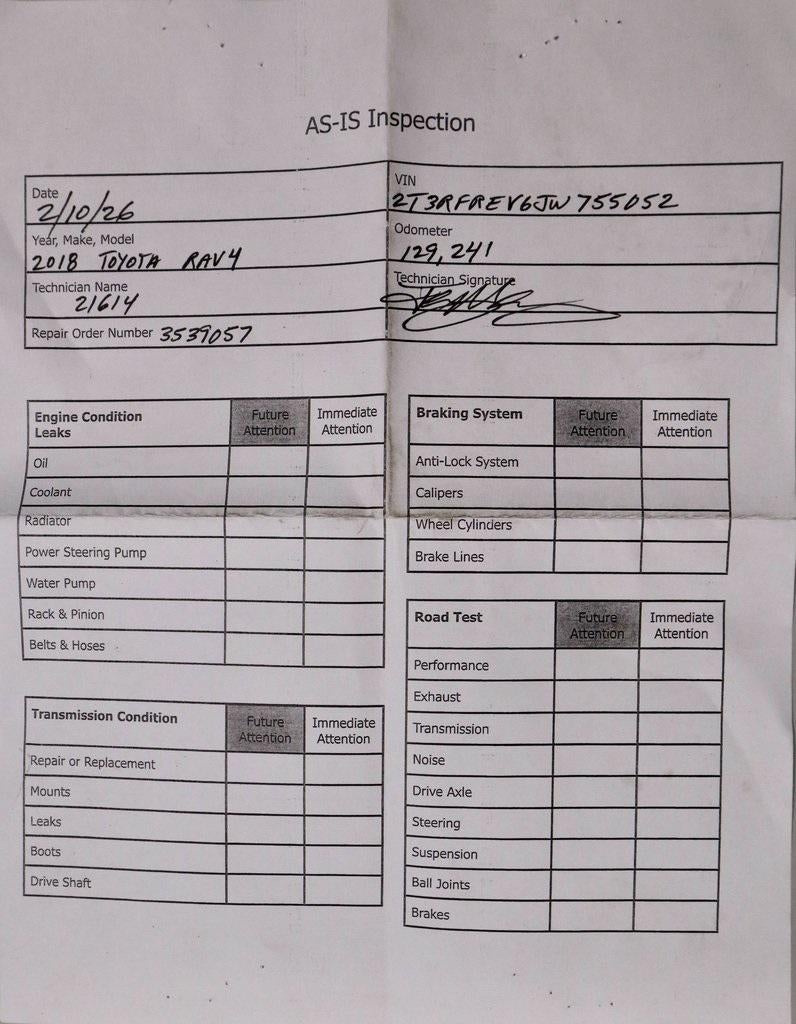 AS-IS Inspection
Date
2/10/26
VIN
2T3RFREV6JW755052
Year, Make, Model
2018 TOYOTA RAV4
Odometer
129,241
Technician Name
21614
Technician Signature
Repair Order Number 3539057
Engine Condition
Leaks
Future
Attention
Immediate
Attention
Oil
Coolant
Radiator
Power Steering Pump
Water Pump
Rack & Pinion
Belts & Hoses
Transmission Condition
Future
Attention
Immediate
Attention
Repair or Replacement
Mounts
Leaks
Boots
Drive Shaft
Braking System
Future
Attention
Immediate
Attention
Anti-Lock System
Calipers
Wheel Cylinders
Brake Lines
Road Test
Future
Attention
Immediate
Attention
Performance
Exhaust
Transmission
Noise
Drive Axle
Steering
Suspension
Ball Joints
Brakes